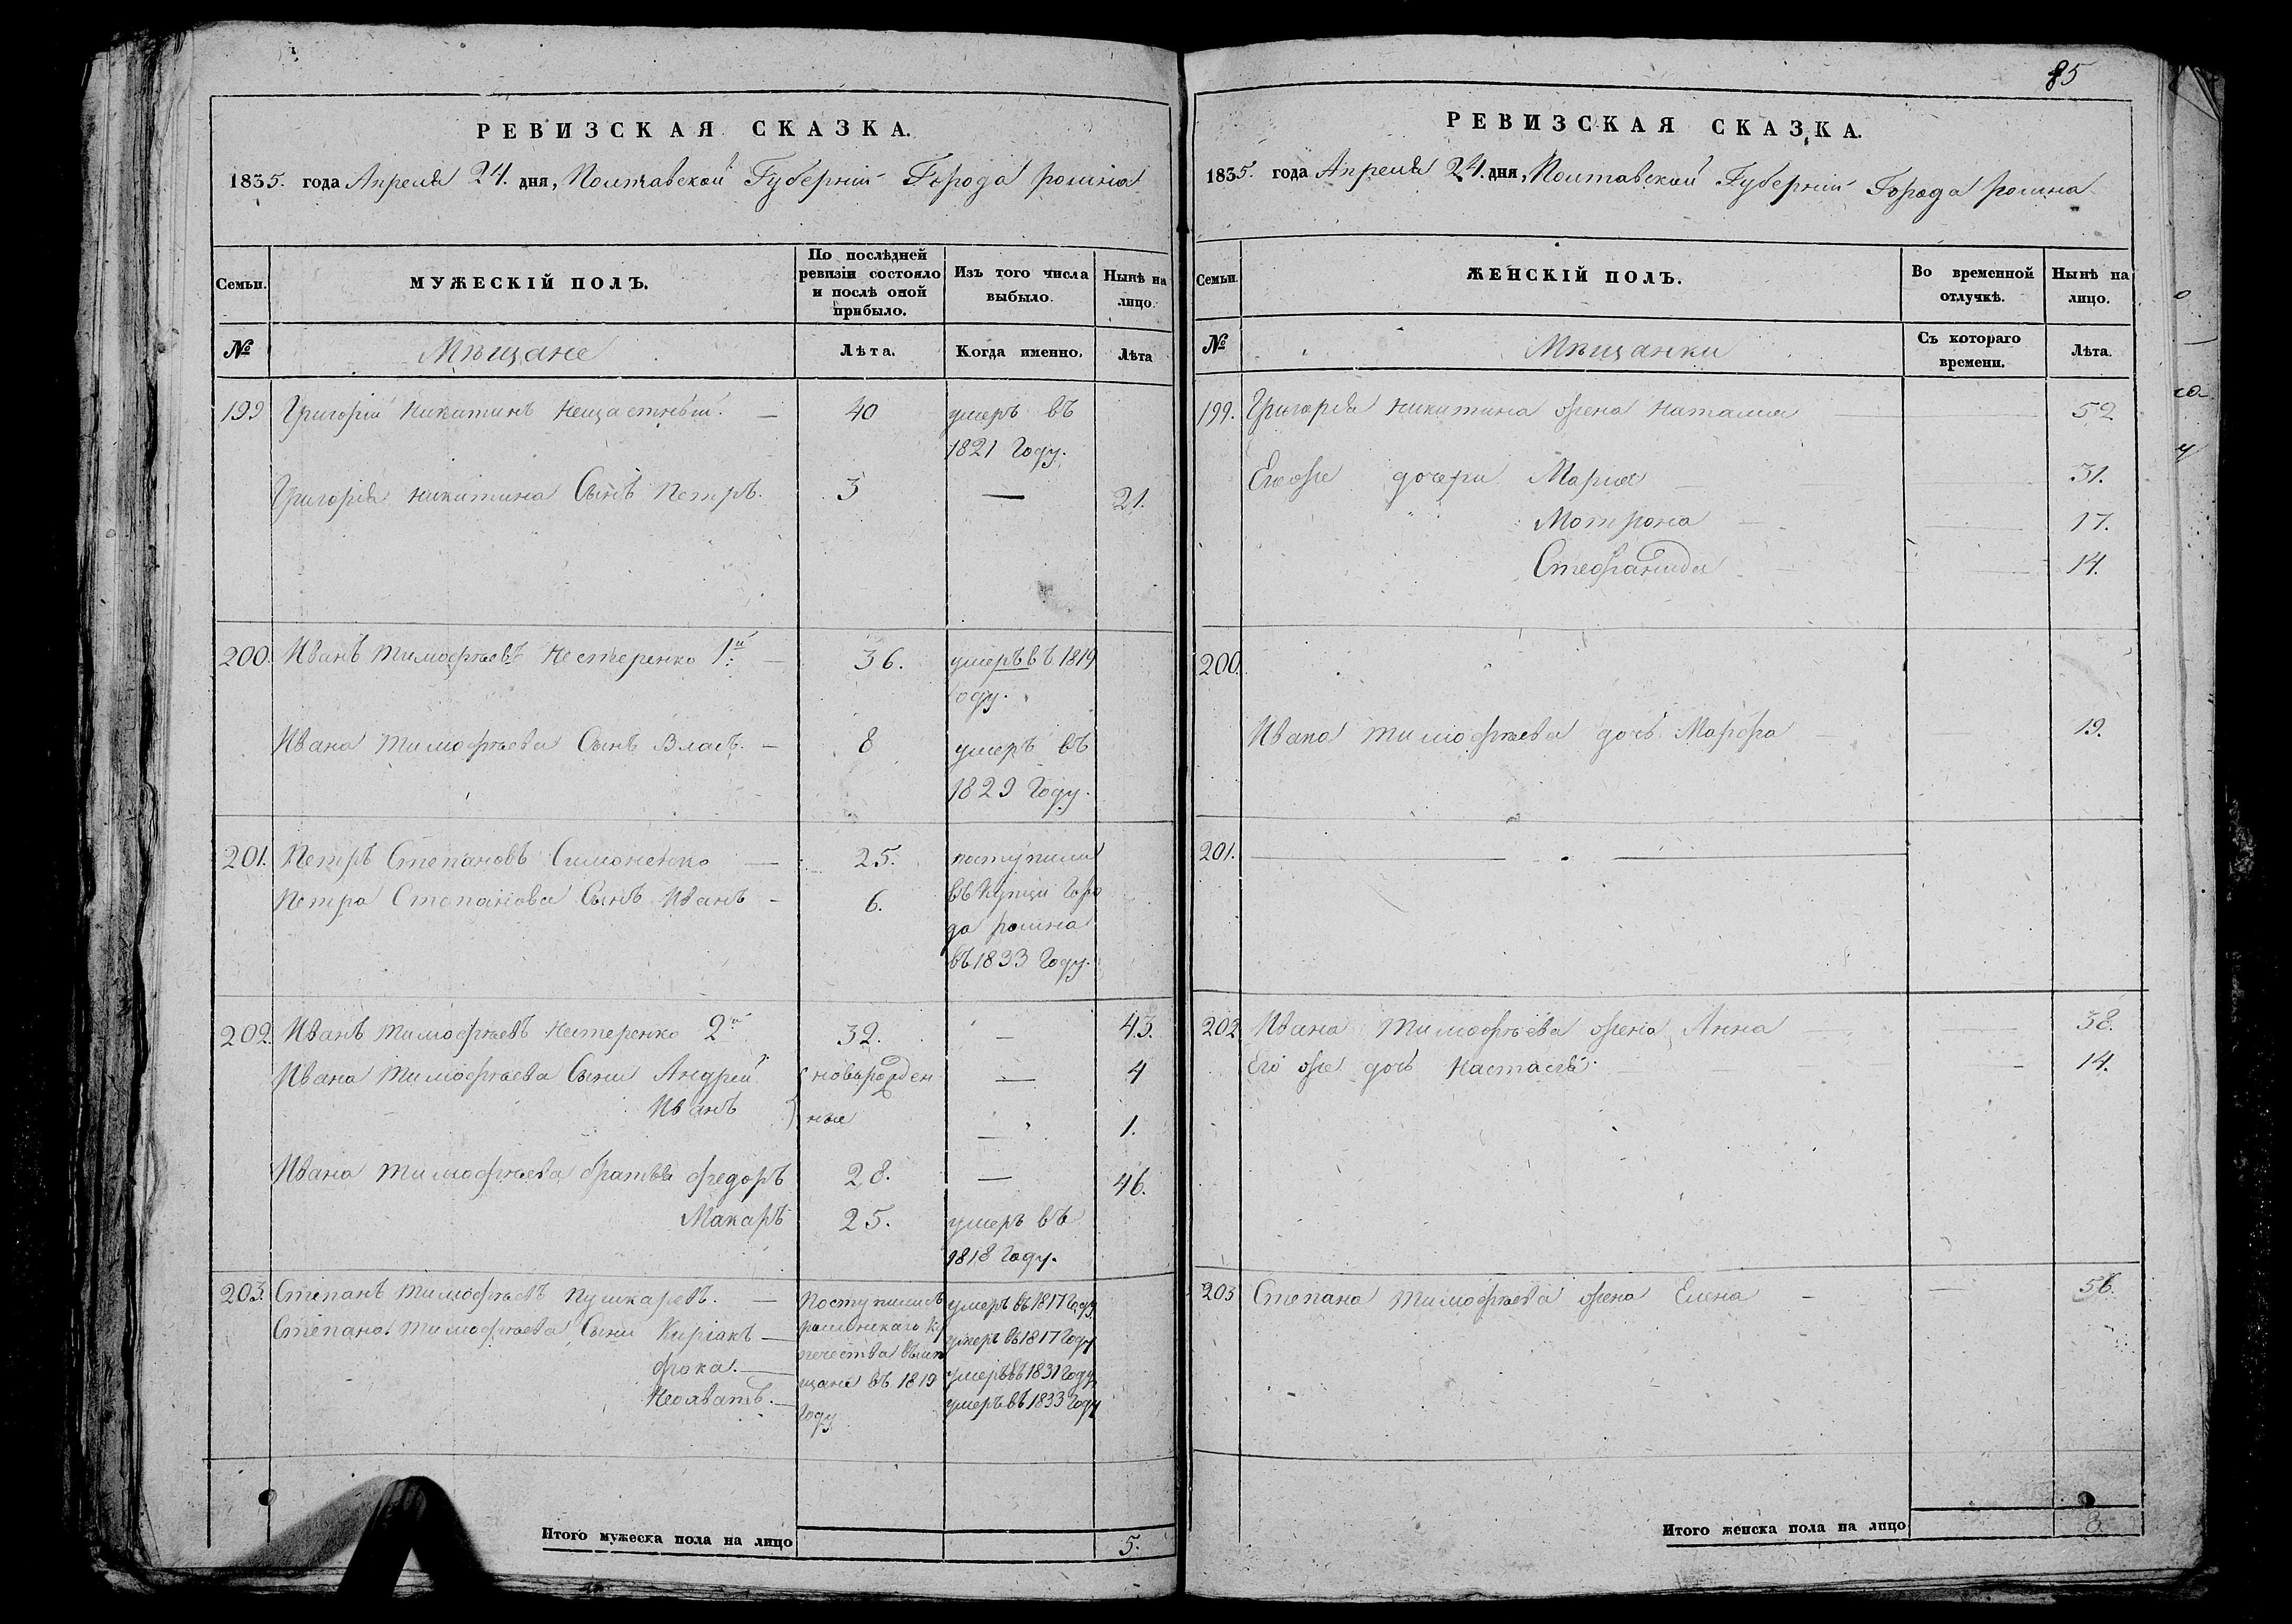 РЕВИЗСКАЯ СКАЗКА.
1835. года Апреля 24. дня, Полтавской Губерніи Города ромна
Семьи.
МУЖЕСКІЙ ПОЛЪ.
По послѣдней ревизіи состояло и послѣ оной прибыло.
Изъ того числа выбыло.
Нынѣ на лицо.
№
Мѣщане
Лѣта.
Когда именно.
Лѣта
199 Григорій Никитинъ Нещастный. — 40 умеръ въ
1821 Году.
Григорія никитина Сынъ Петръ. 3 — 21.
200. Иванъ тимофѣевъ Нестеренко 1й — 36. умеръ въ 1819
Году.
Ивана тимофѣева Сынъ Власъ. — 8 умеръ въ
1829 Году.
201. Петръ Степановъ Симоненко — 25. поступили
Петра Степанова Сынъ Иванъ — 6. въ Купци Горо
да ромна
въ 1833 Году.
202. Иванъ тимофѣевъ Нестеренко 2й 32. — 43.
Ивана тимофѣева Сыни Андрей новорожден — 4
Иванъ ные — 1.
Ивана тимофѣева братья федоръ 28. — 46.
Макаръ 25. умеръ въ
1818 Году.
203. Степанъ тимофѣевъ Пушкаревъ. — Поступили съ умеръ въ 1817 Году
Степана тимофѣева Сыни Киріакъ — роменскаго ку умеръ въ 1817 Году
фока. — печества въ мѣ умеръ въ 1831 Году
— щане въ 1819 умеръ въ 1833 Году
Году
Итого мужеска пола на лицо 5.
85
РЕВИЗСКАЯ СКАЗКА.
1835. года Апреля 24. дня, Полтавской Губерніи Города ромна
Семьи.
ЖЕНСКІЙ ПОЛЪ.
Во временной отлучкѣ.
Нынѣ на лицо.
№
Мѣщанки
Съ котораго времени.
Лѣта.
199. Григорія никитина жена Наталия 52
Егоже дочери Мария 31.
Мотрона 17.
Стефанида 14.
200.
Ивана тимофѣева дочь Марфа 19.
201.
202 Ивана Тимофѣева жена Анна 38.
Его же дочь Настасья 14.
203 Степана тимофѣева жена Елена — — 56.
Итого женска пола на лицо 8